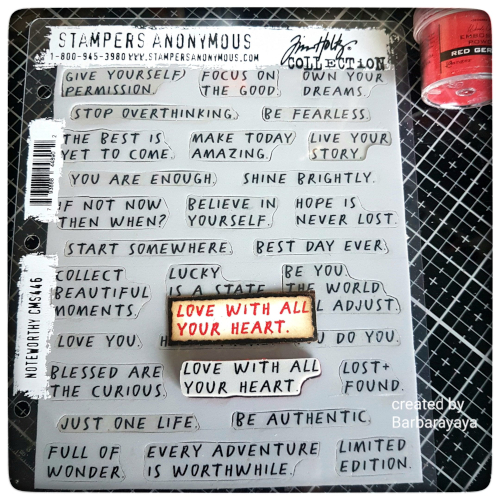 STAMPERS ANONYMOUS
1-800-945-3980 WWW.STAMPERSANONYMOUS.COM
Tim Holtz
COLLECTION
RED GER
GIVE YOURSELF PERMISSION.
FOCUS ON THE GOOD.
OWN YOUR DREAMS.
STOP OVERTHINKING.
BE FEARLESS.
THE BEST IS YET TO COME.
MAKE TODAY AMAZING.
LIVE YOUR STORY.
YOU ARE ENOUGH.
SHINE BRIGHTLY.
IF NOT NOW THEN WHEN?
BELIEVE IN YOURSELF.
HOPE IS NEVER LOST.
START SOMEWHERE.
BEST DAY EVER.
COLLECT BEAUTIFUL MOMENTS.
LUCKY IS A STATE
BE YOU. THE WORLD
ADJUST.
LOVE WITH ALL
YOUR HEART.
LOVE YOU.
YOU DO YOU.
BLESSED ARE THE CURIOUS.
LOVE WITH ALL
YOUR HEART.
LOST+ FOUND.
JUST ONE LIFE.
BE AUTHENTIC.
FULL OF WONDER.
EVERY ADVENTURE IS WORTHWHILE.
LIMITED EDITION.
NOTEWORTHY CMS446
created by
Barbarayaya